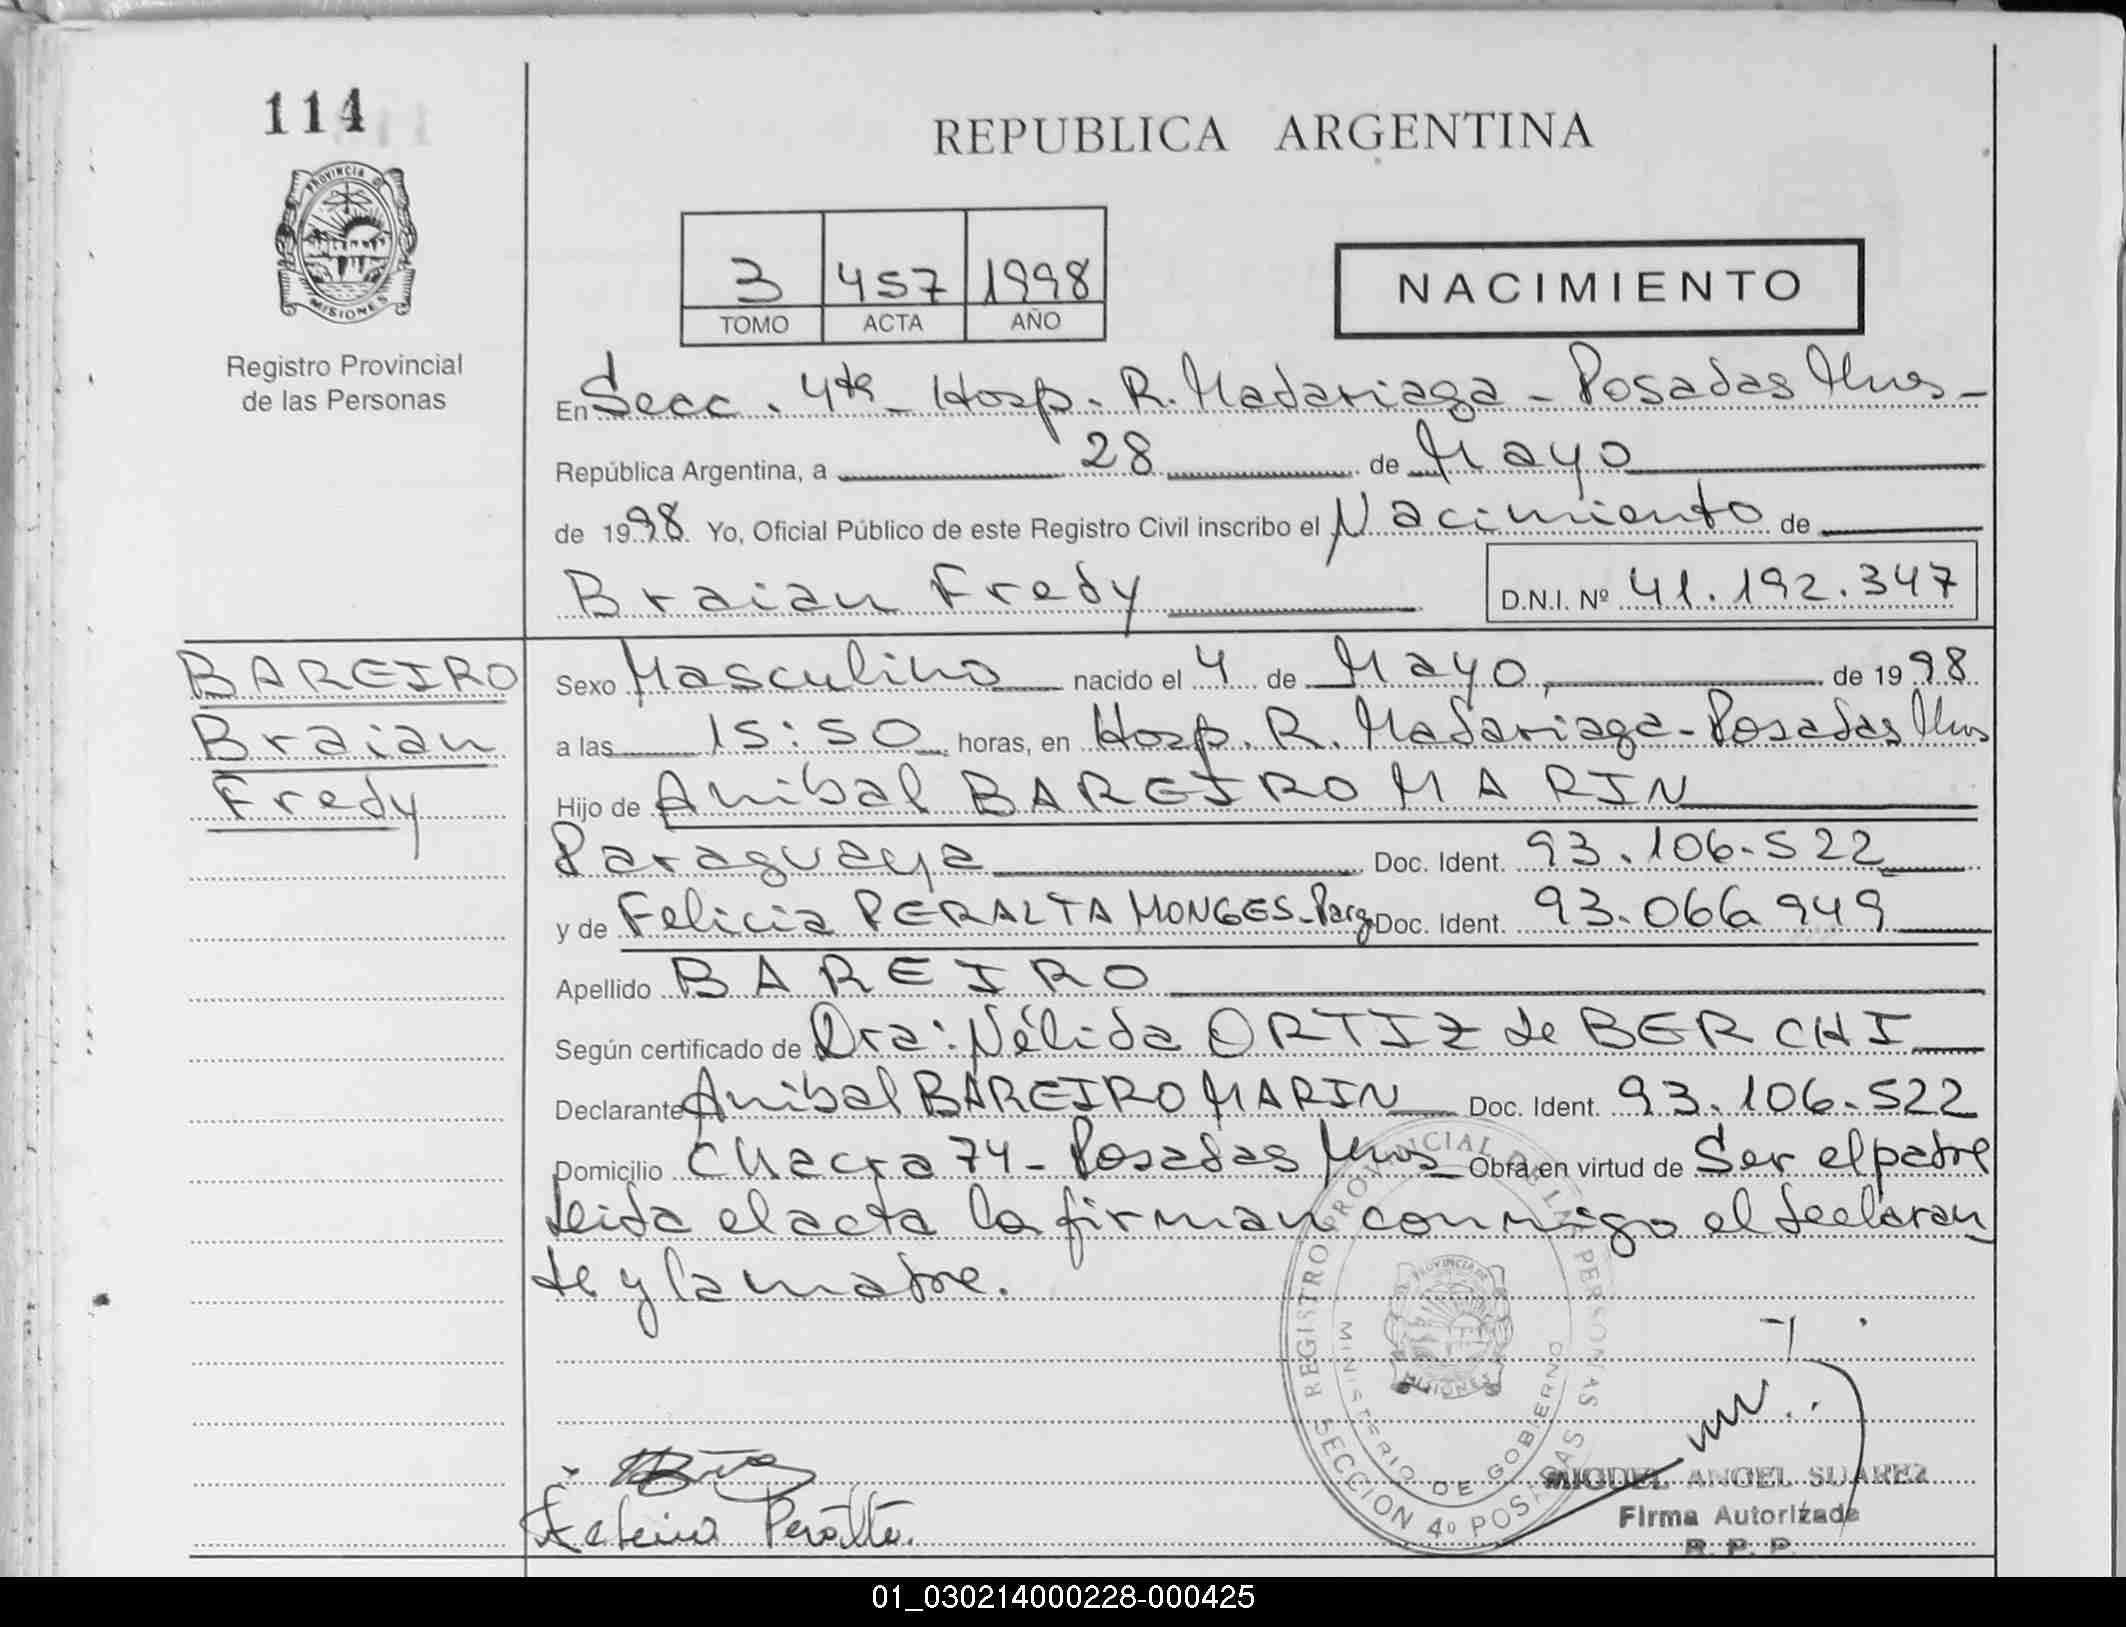 114
PROVINCIA DE
MISIONES
Registro Provincial
de las Personas
REPUBLICA ARGENTINA
3 457 1998
TOMO ACTA AÑO
NACIMIENTO
En Secc. 4ta - Hosp. R. Madariaga - Posadas Mnes -
República Argentina, a 28 de Mayo
de 1998. Yo, Oficial Público de este Registro Civil inscribo el Nacimiento de
Braian Fredy D.N.I. Nº 41.192.347
BAREIRO
Braian
Fredy
Sexo Masculino nacido el 4 de Mayo, de 1998
a las 15:50 horas, en Hosp. R. Madariaga - Posadas Mnes
Hijo de Anibal BAREIRO MARIN
Paraguaya Doc. Ident. 93.106.522
y de Felicia PERALTA MONGES - Parg Doc. Ident. 93.066.949
Apellido BAREIRO
Según certificado de Dra: Nélida ORTIZ de BERCHI
Declarante Anibal BAREIRO MARIN Doc. Ident. 93.106.522
Domicilio Chacra 74 - Posadas Mnes Obra en virtud de Ser el padre
leida el acta la firman conmigo el declaran
te y la madre.
REGISTRO PROVINCIAL DE LAS PERSONAS
SECCION 4º POSADAS
MINISTERIO DE GOBIERNO
PROVINCIA DE
MISIONES
Peralta.
MIGUEL ANGEL SUAREZ
Firma Autorizada
R. P. P.
01_030214000228-000425